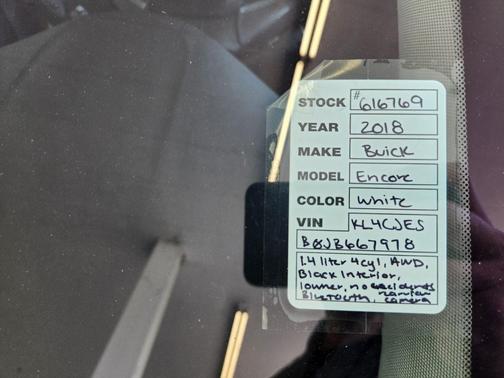 STOCK #616769
YEAR 2018
MAKE Buick
MODEL Encore
COLOR White
VIN KL4CJES
B8JB667978
1.4 liter 4cyl, AWD,
Black Interior,
1owner, no accidents
Bluetooth, rearview
camera